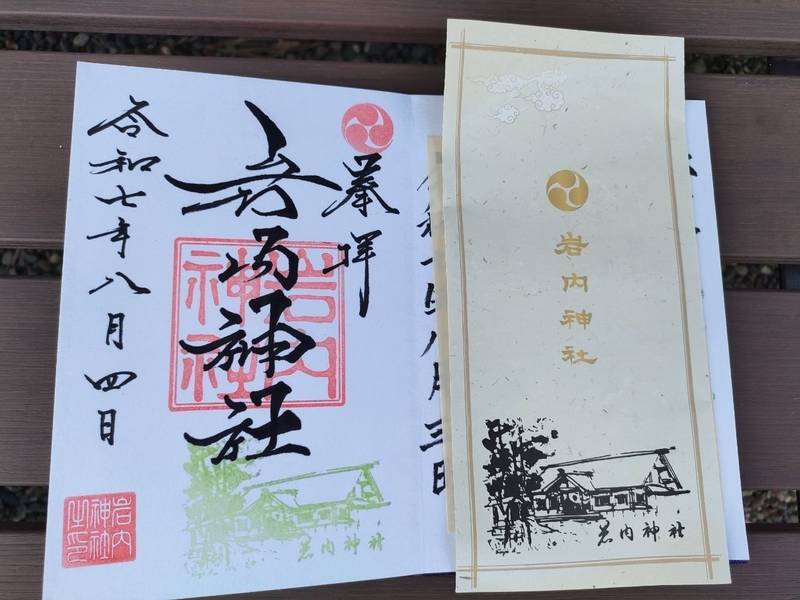 岩内神社
岩内神社
八月三日
奉拝
岩内神社
岩内
神社
令和七年八月四日
岩内
神社
之印
岩内神社